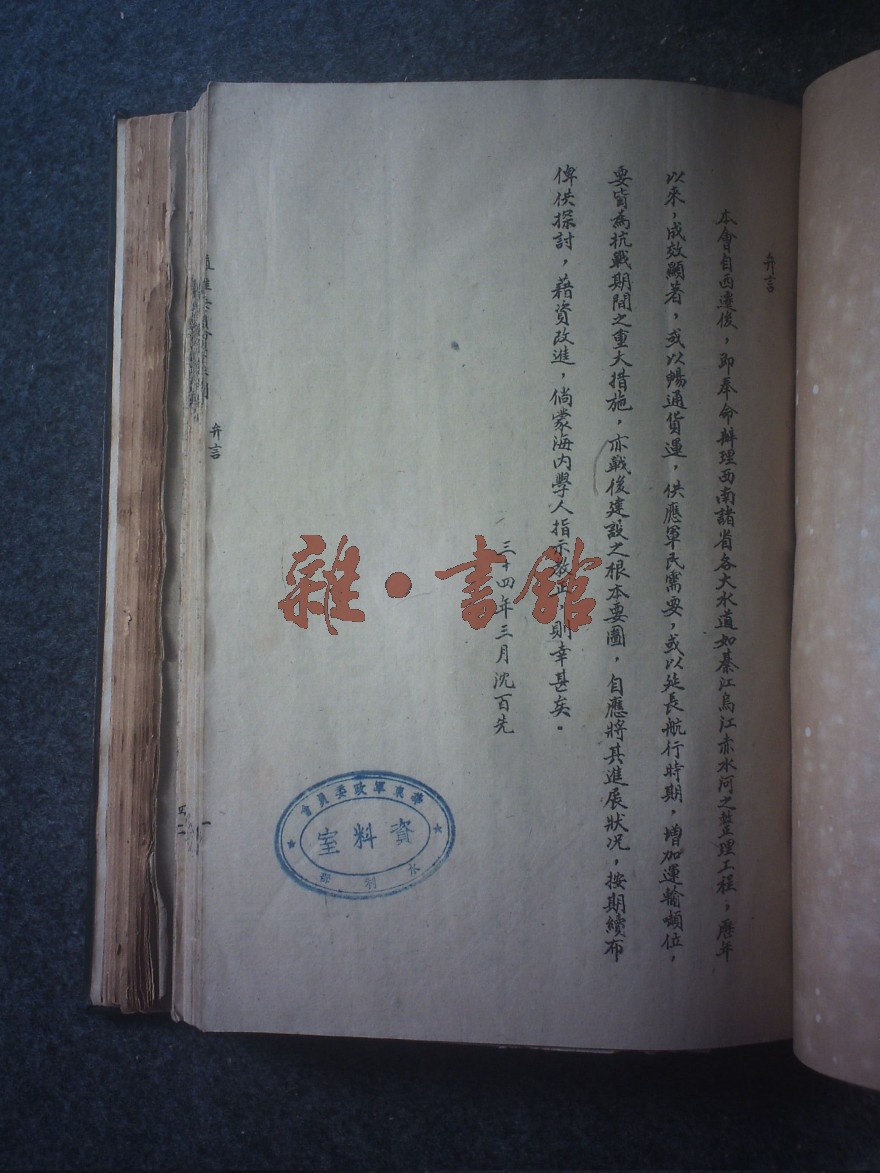 弁言
本會自西遷後，即奉命辦理西南諸省各大水道如綦江烏江赤水河之整理工程，歷年
以來，成效顯著，或以暢通貨運，供應軍民需要，或以延長航行時期，增加運輸噸位，
要皆為抗戰期間之重大措施，亦戰後建設之根本要圖，自應將其進展狀況，按期續布
俾供探討，藉資改進，倘蒙海內學人指示教正，則幸甚矣。
三十四年三月沈百先
弁言
一
雜·書館
華東軍政委員會
資料室
水利部